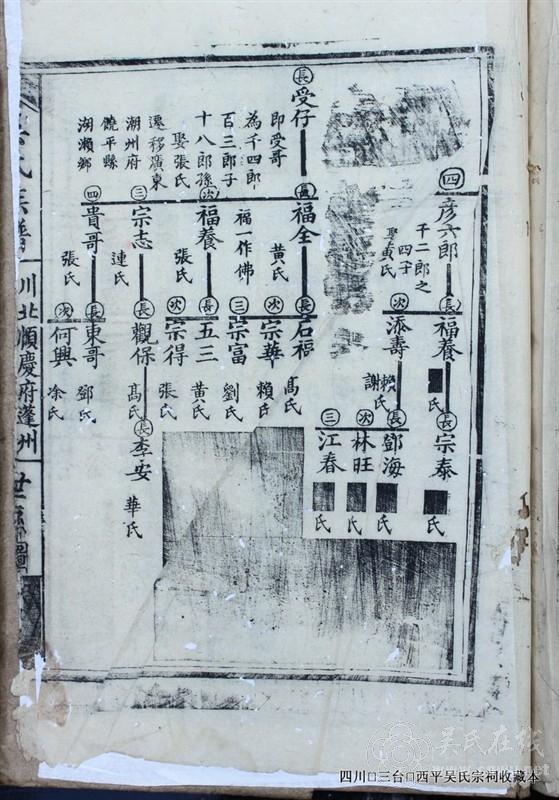 四
彦六郎
千二郎之
四子
娶黄氏
長
福養
氏
長
宗泰
氏
次
添壽
賴
謝
氏
長
鄧海
氏
次
林旺
氏
三
江春
氏
長
受仔
即受哥
為千四郎
百三郎子
十八郎孫
娶張氏
遷移廣東
潮州府
饒平縣
湖瀨鄉
長
福全
福一作佛
黄氏
長
石福
高氏
次
宗華
賴氏
三
宗富
劉氏
次
福養
張氏
長
五三
黄氏
次
宗得
張氏
三
宗志
連氏
長
觀保
高氏
長
李安
華氏
四
貴哥
張氏
長
東哥
鄧氏
次
何興
余氏
氏宗譜
川北順慶府蓬州
世系圖
吴氏在线
四川□三台□西平吴氏宗祠收藏本